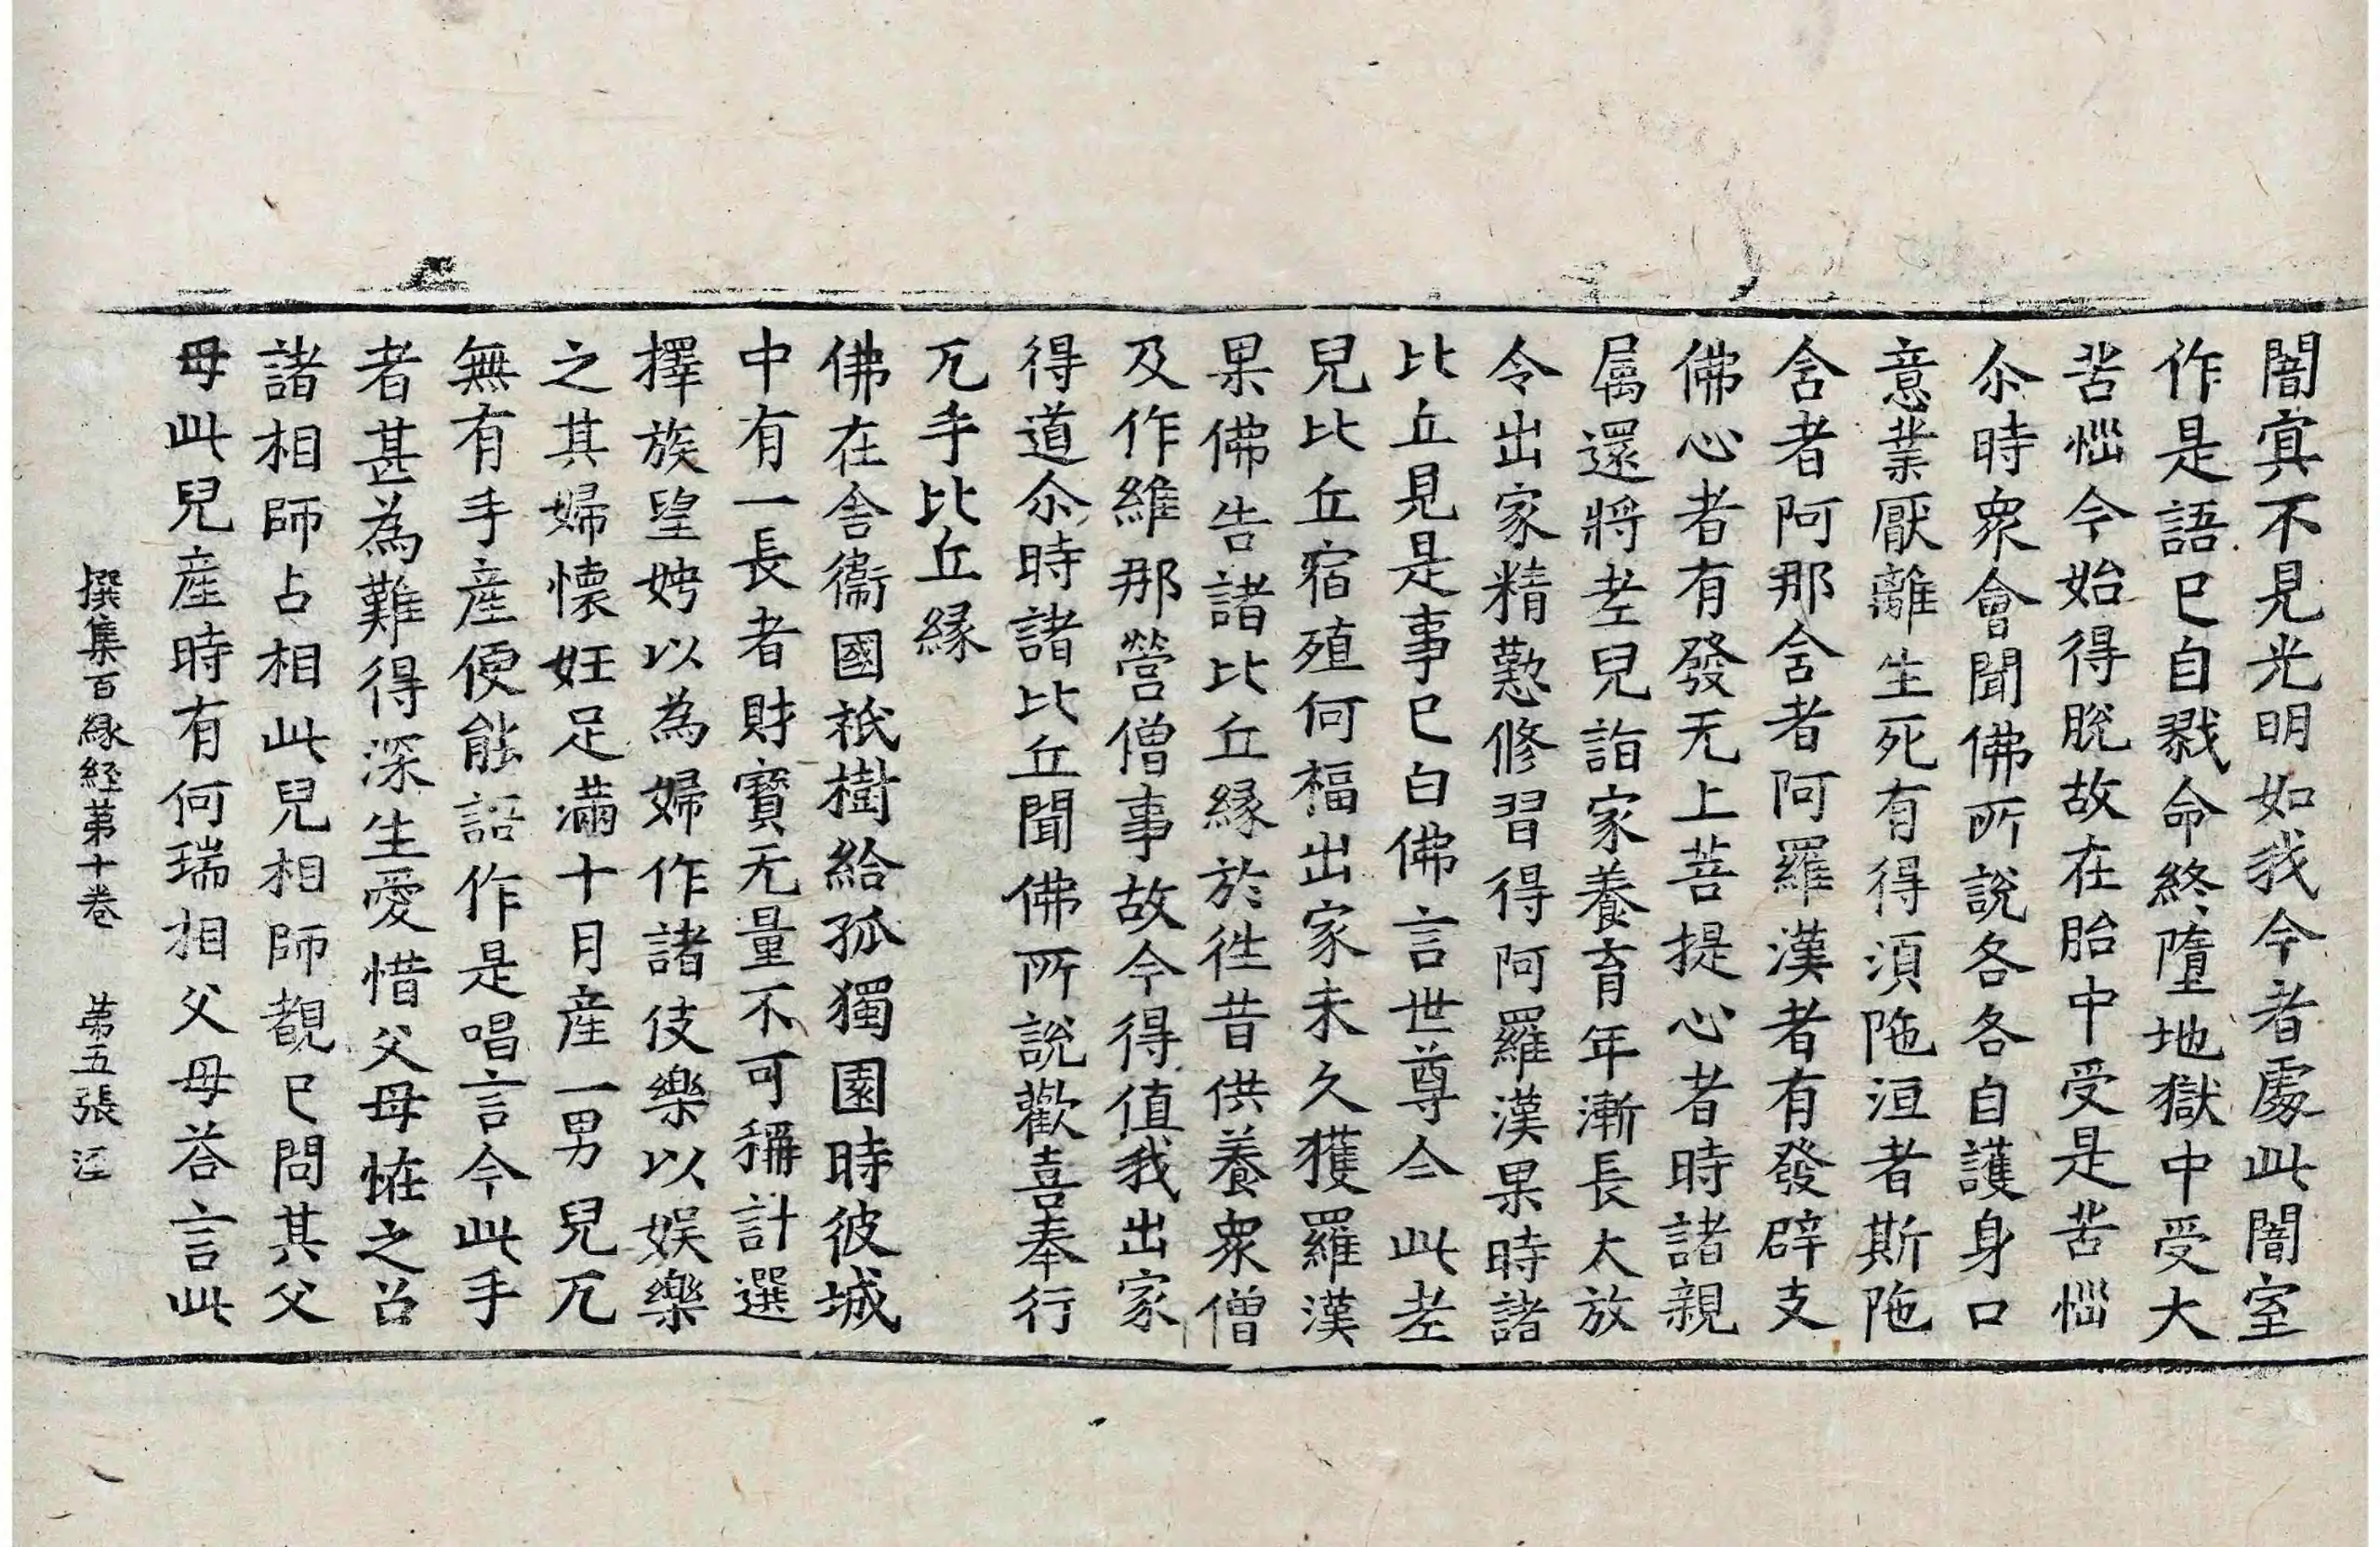 闇寘不見光明如我今者處此闇室
作是語已自戮命終墮地獄中受大
苦惱今始得脫故在胎中受是苦惱
尒時衆會聞佛所說各各自護身口
意業厭離生死有得湏陁洹者斯陁
含者阿那含者阿羅漢者有發辟支
佛心者有發无上菩提心者時諸親
屬還將老兒詣家養育年漸長大放
令出家精懃修習得阿羅漢果時諸
比丘見是事已白佛言世尊今此老
兒比丘宿殖何福出家未久獲羅漢
果佛告諸比丘縁於徃昔供養衆僧
及作維那營僧事故今得值我出家
得道尒時諸比丘聞佛所說歡喜奉行
兀手比丘縁
佛在舍衞國祇樹給孤獨園時彼城
中有一長者財寶无量不可稱計選
擇族望娉以為婦作諸伎樂以娱樂
之其婦懷妊足滿十月産一男兒兀
無有手産便能語作是唱言今此手
者甚為難得深生愛惜父母恠之召
諸相師占相此兒相師覩已問其父
母此兒産時有何瑞相父母荅言此
撰集百縁経苐十卷 苐五張